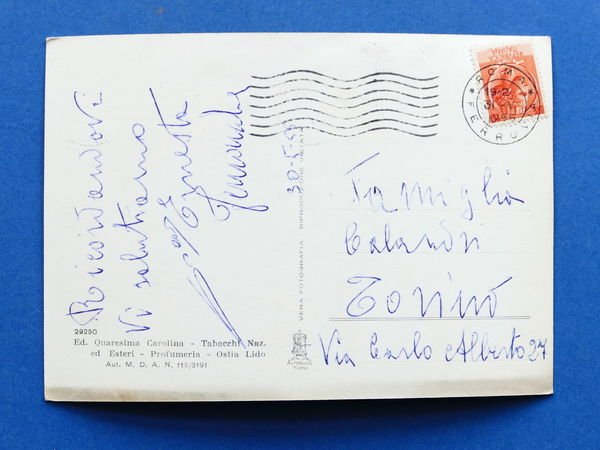 Ricordandovi
Vi salutiamo
Ernesta
30-5-5
29250
Ed. Quaresima Carolina - Tabacchi Naz.
ed Esteri - Profumeria - Ostia Lido
Aut. M. D. A. N. 115/3191
VERA FOTOGRAFIA - RIPRODUZIONE VIETATA
ALTEROCCA
TERNI
ROMA
19-2
FERROVIA
Famiglia
Calandri
Torino
Via Carlo Alberto 27